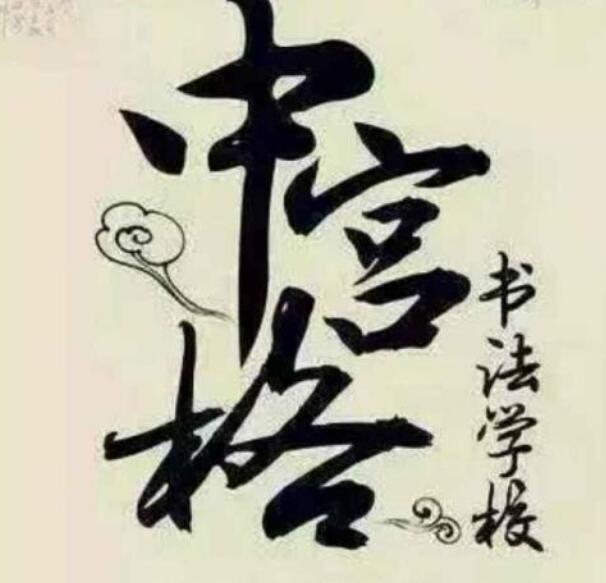 中宫格
书法学校